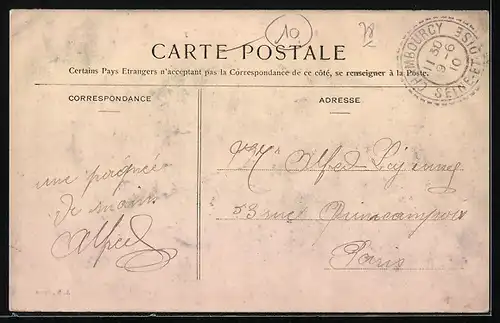 10
CARTE POSTALE
Certains Pays Etrangers n'acceptant pas la Correspondance de ce côté, se renseigner à la Poste.
CHAMBOURCY
11 30
9 - 6
10
SEINE-ET-OISE
CORRESPONDANCE
ADRESSE
une poignée
de main
Alfred
Alfred
53 rue Quincampoix
Paris